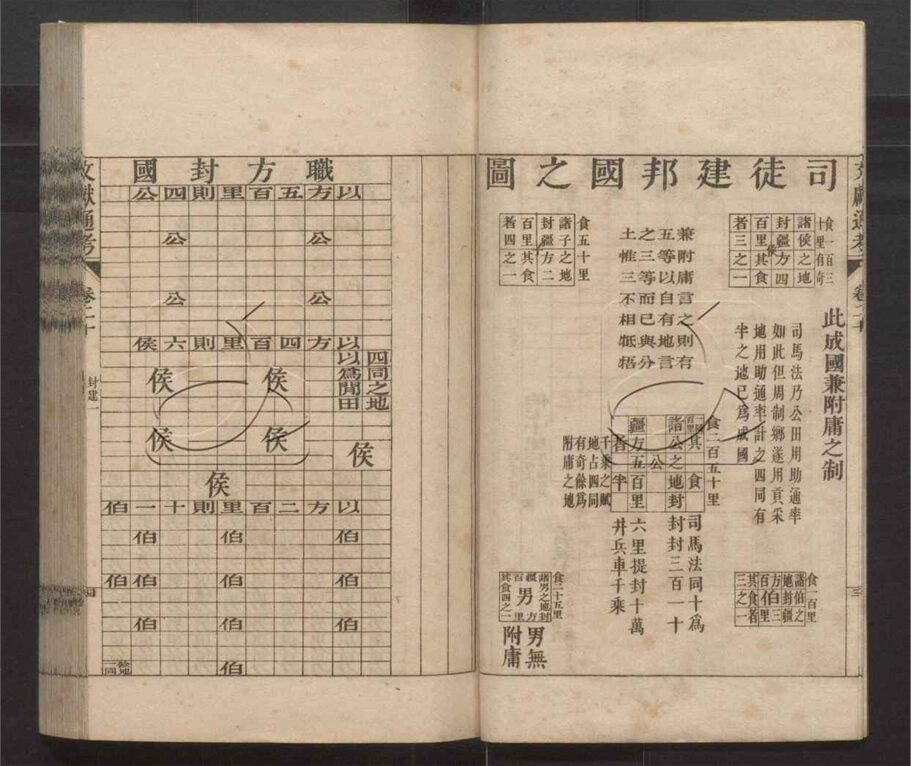 司徒建邦國之圖
文獻通考
三
食一百三
十里有奇
諸侯之地
封疆方四
百里其食
者三之一
此成國兼附庸之制
司馬法乃公田用助通率
如此但周制鄉遂用貢采
地用助通率計之四同有
半之遽已為成國
兼附庸言之則有
五等以自有地言
之三等而已與分
土惟三不相牴牾
食五十里
諸子之地
封疆方二
百里其食
者四之一
食一百五十里
其食
諸公之地封
公
疆方五百里
者半
千乘之賦
地占四同
有奇餘為
附庸之地
司馬法同十為
封封三百一十
六里提封十萬
井兵車千乘
食一百里
諸伯之
地封疆
方三
伯
百里
其食者
三之一
食二十五里
諸男之地封
疆方
男
百里
其食四之一
男無
附庸
職方封國
以方五百里則四公
公 公
公 公
以方四百里則六侯
四同之地
以為閒田
侯 侯
侯 侯 侯
侯
以方二百里則十一伯
伯 伯 伯
伯 伯 伯 伯
伯 伯 伯
伯
餘地
一同
文獻通考
封建一
四